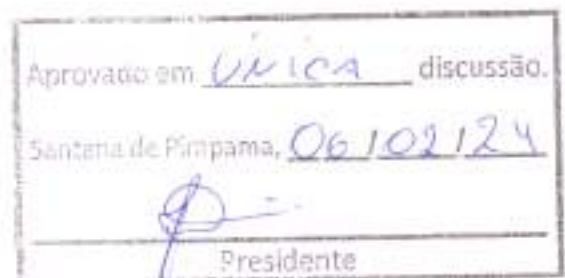 Aprovado em UNICA discussão.
Santana de Pimpama, 06/02/24
Presidente